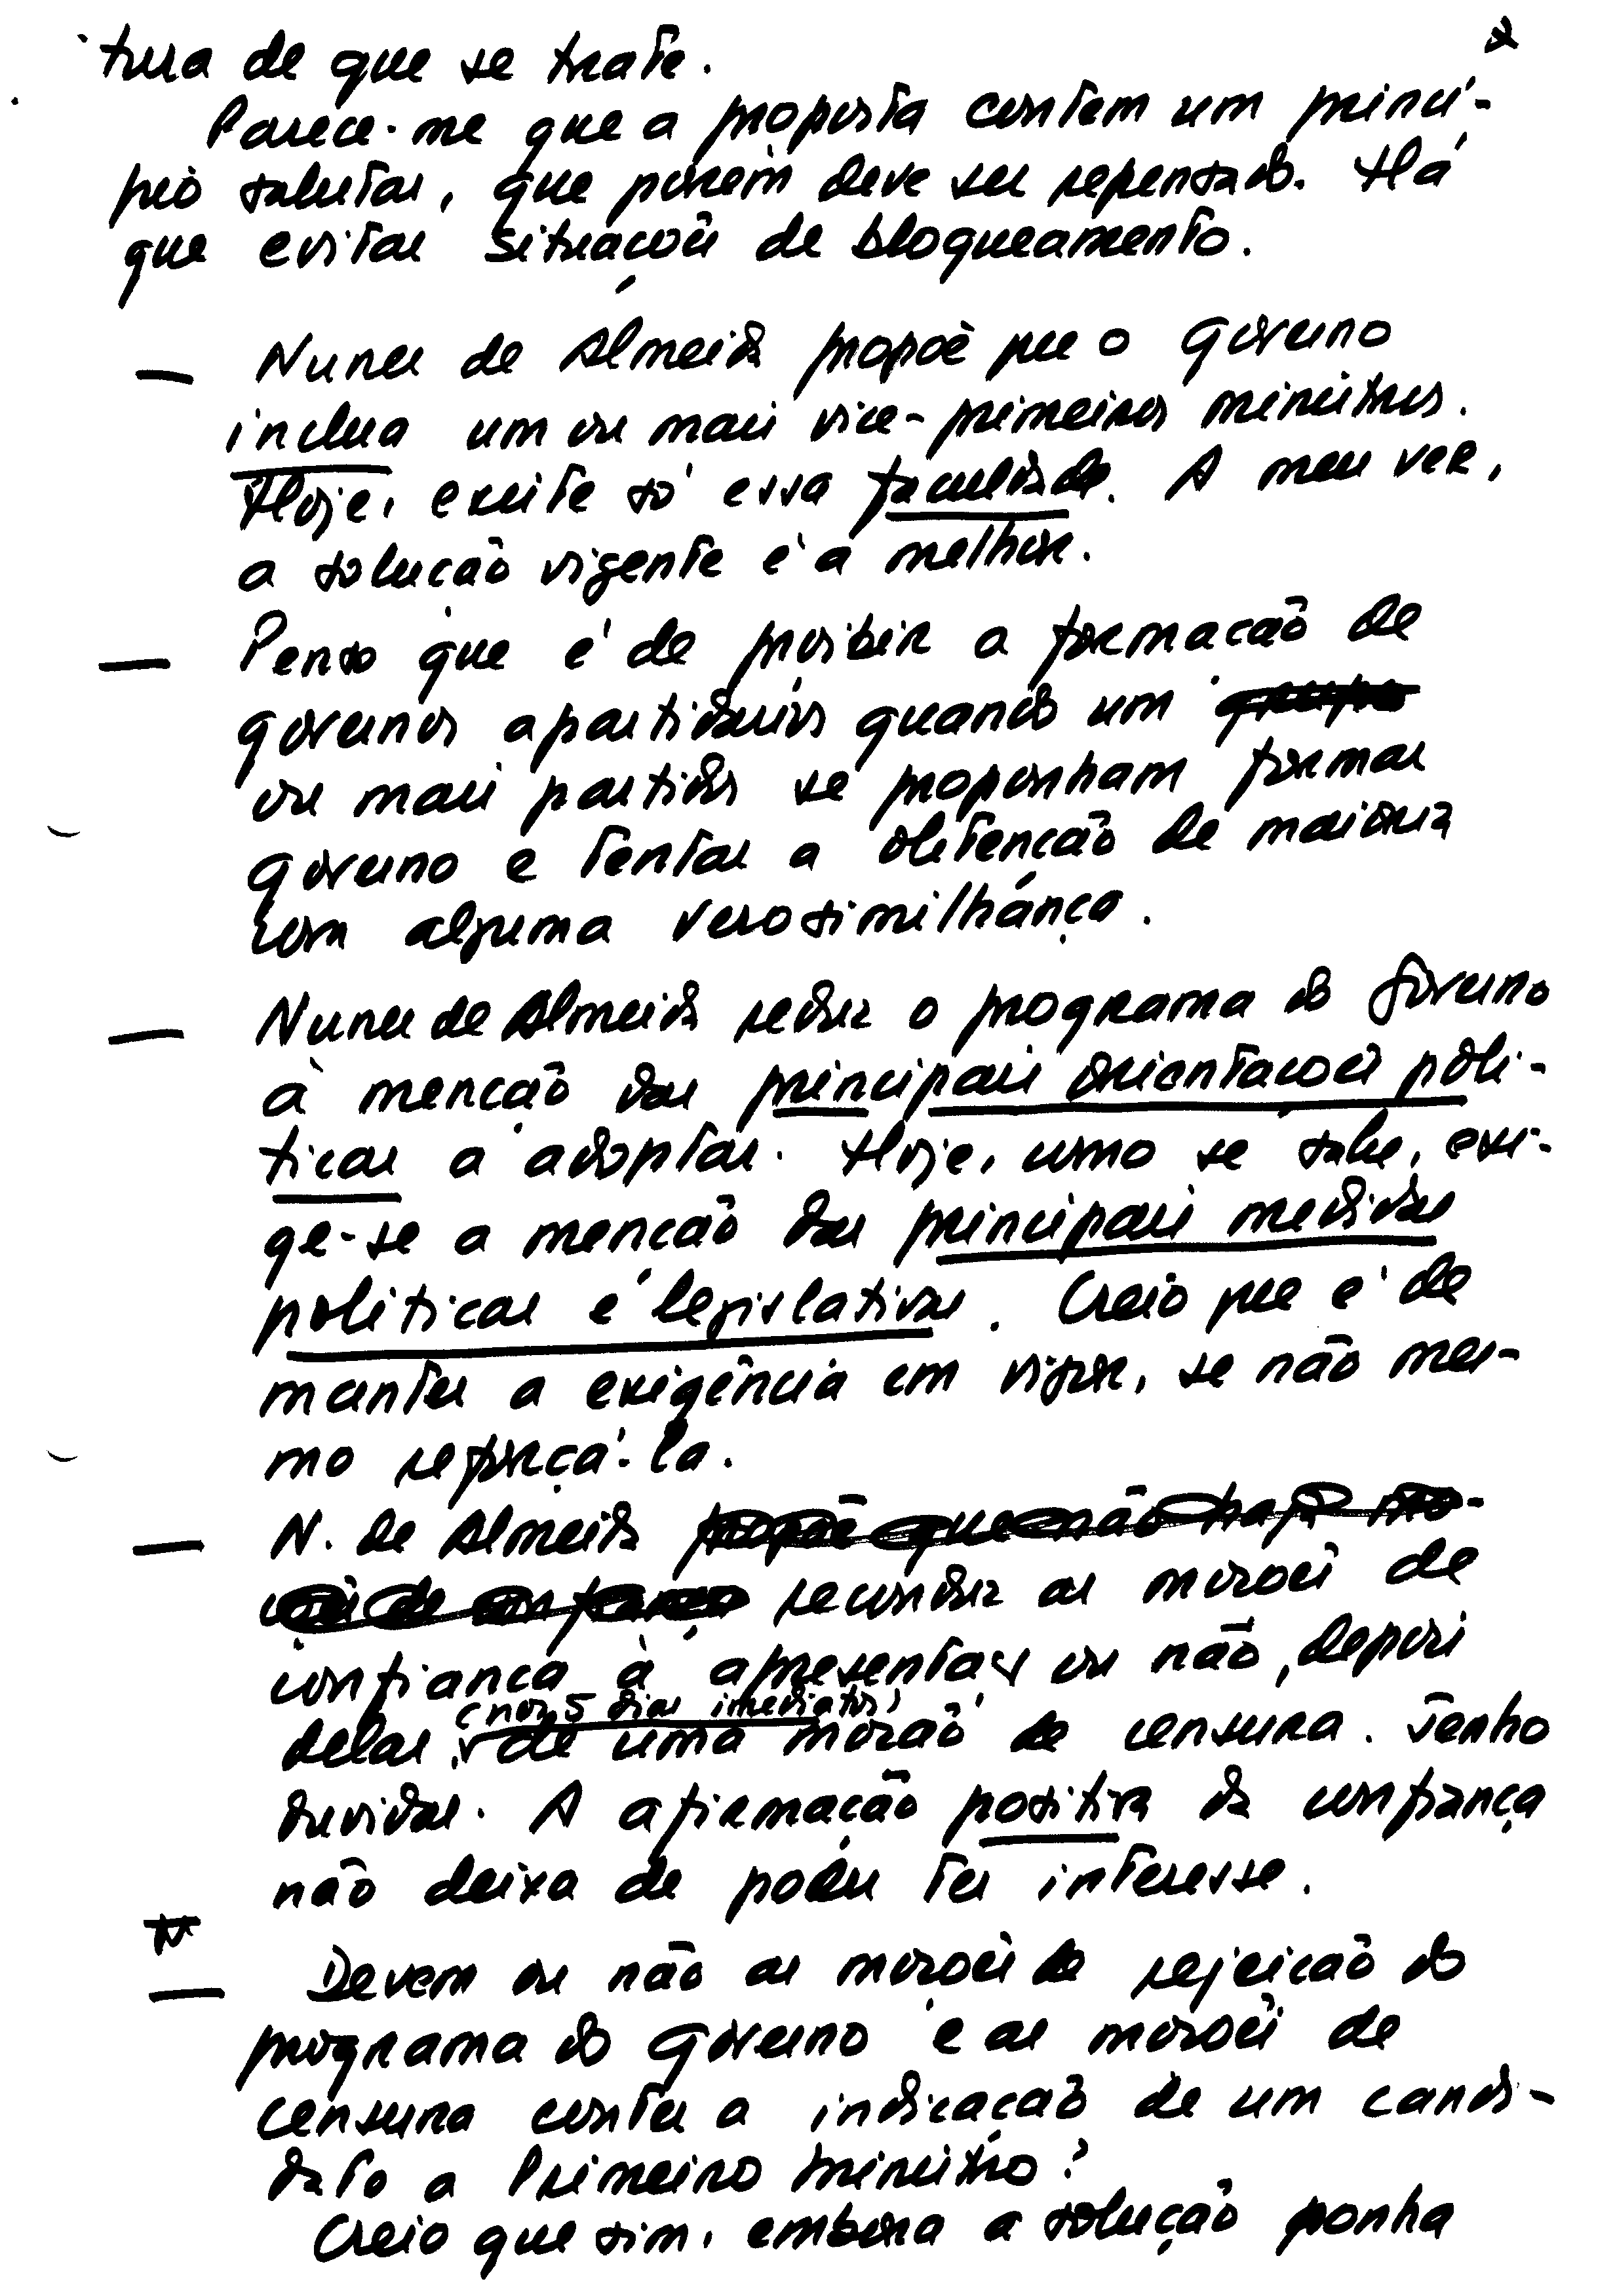 tura de que se trate.
Parece-me que a proposta contem um princí-
pio salutar, que porém deve ser repensado. Há
que evitar situações de bloqueamento.
— Nunes de Almeida propõe que o governo
inclua um ou mais vice-primeiros ministros.
Hoje, existe só essa faculdade. A meu ver,
a solução vigente é a melhor.
— Penso que é de proibir a formação de
governos apartidários quando um grupo
ou mais partidos se proponham formar
governo e tentar a obtenção de maioria
com alguma verosimilhança.
— Nunes de Almeida reduz o programa do Governo
à menção das principais orientações polí-
ticas a adoptar. Hoje, como se sabe, exi-
ge-se a menção das principais medidas
políticas e legislativas. Creio que é de
manter a exigência em vigor, se não mes-
mo reforçá-la.
— N. de Almeida propõe que não haja mo-
ções de confiança reconduz as moções de
confiança à apresentação ou não, depois
(nos 5 dias imediatos)
delas, de uma moção de censura. Tenho
dúvidas. A afirmação positiva da confiança
não deixa de poder ter interesse.
— Devem ou não as moções de rejeição do
programa do governo e as moções de
censura conter a indicação de um candi-
dato a Primeiro Ministro?
Creio que sim, embora a solução ponha